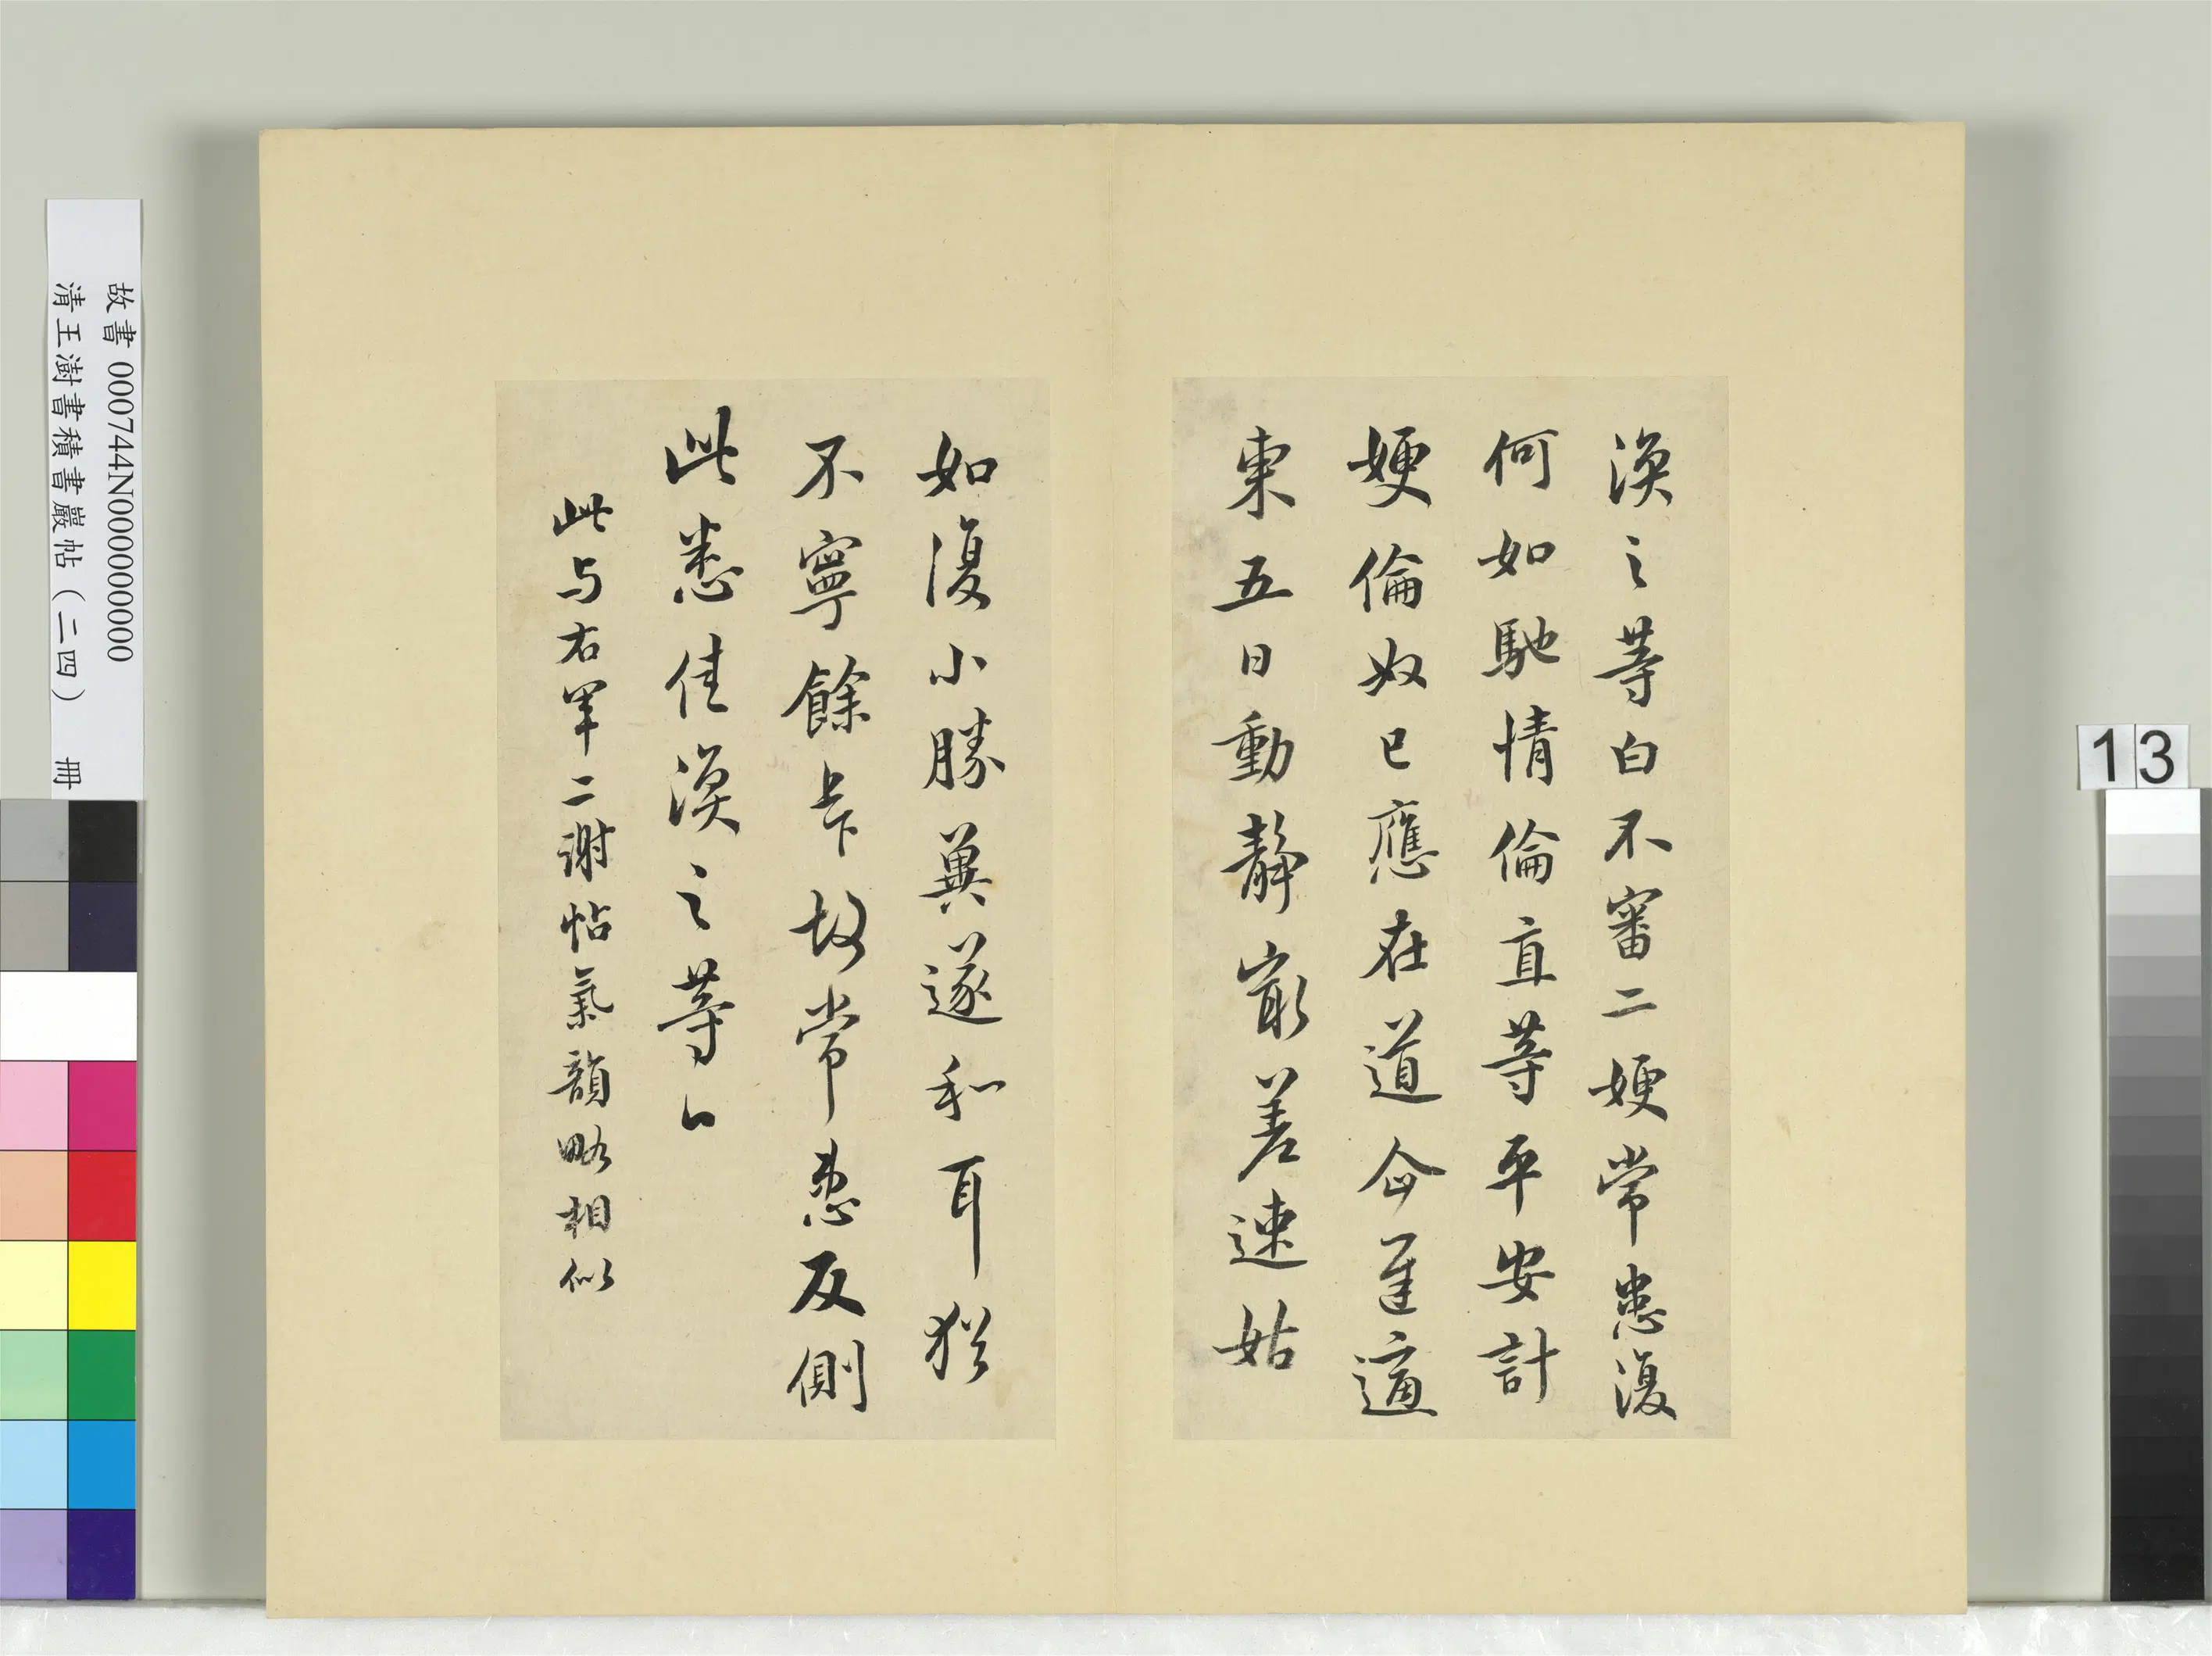 渙之等白不審二嫂常患復
何如馳情倫直等平安計
嫂倫奴已應在道今近適
東五日動靜寂差速姑
如復小勝冀遂和耳猶
不寧餘上下故常患反側
此悉佳渙之等白
此与右軍二謝帖氣韻略相似
故書 000744N000000000
清王澍書積書巖帖（二四） 冊
13